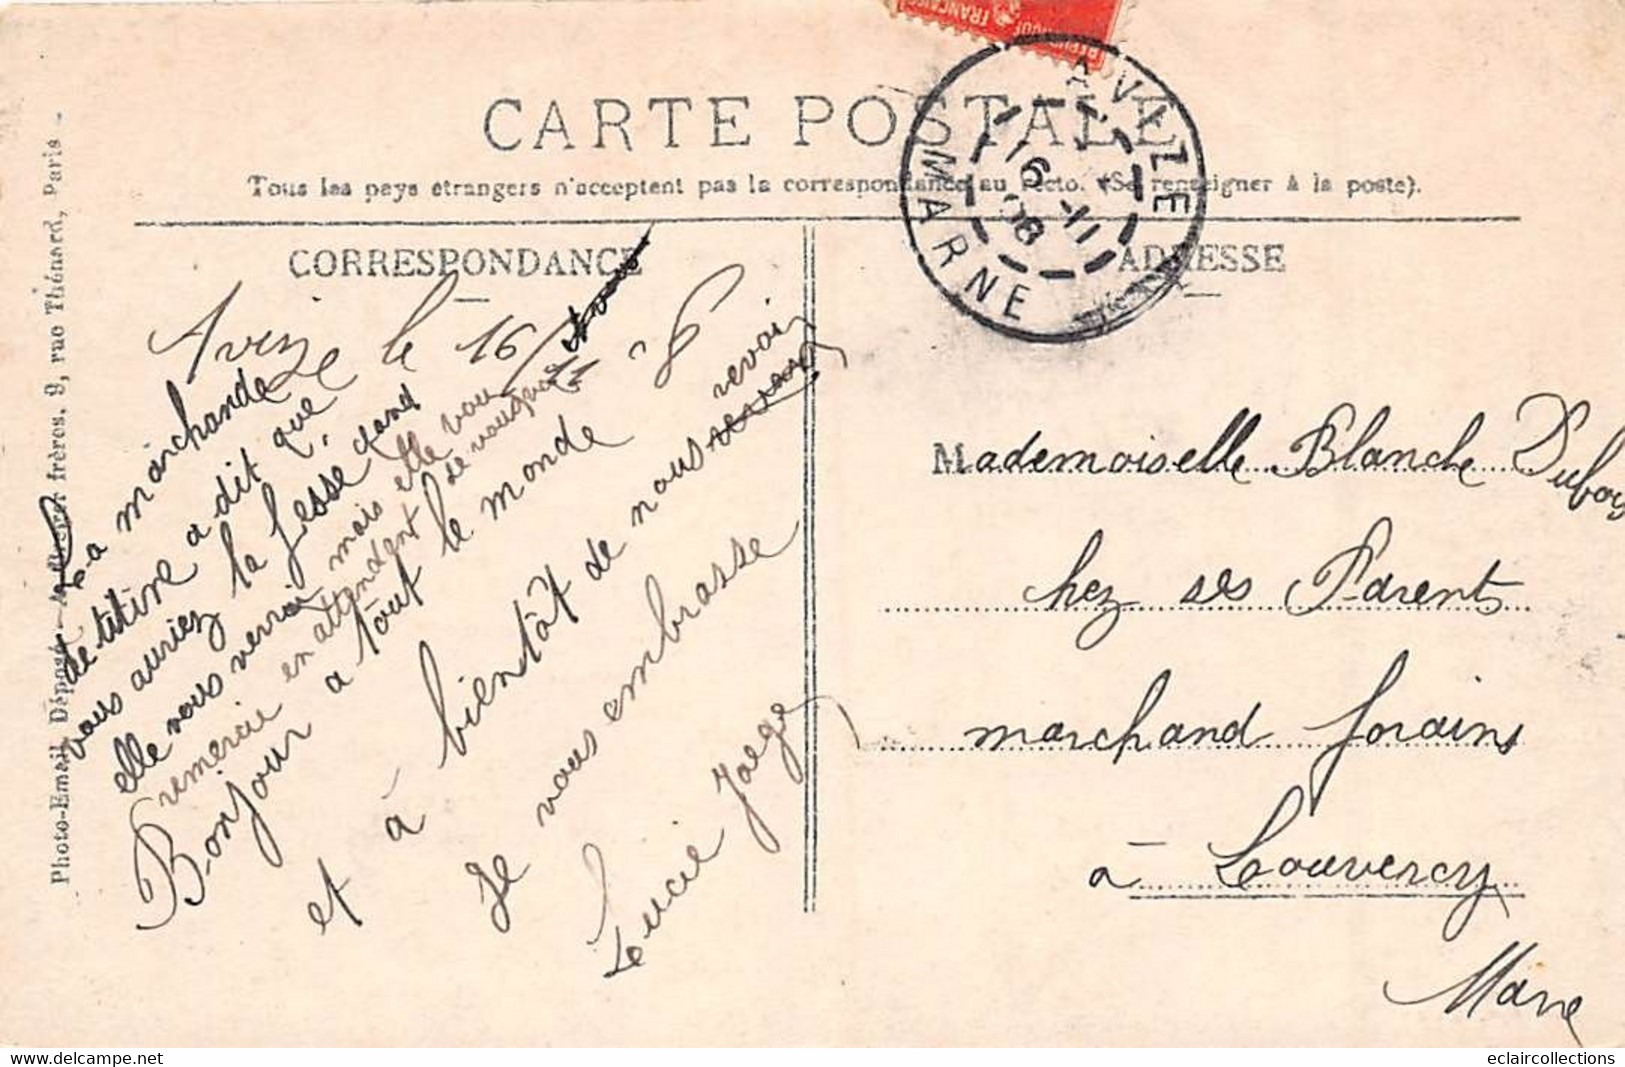 RÉPUBLIQUE FRANÇAISE
CARTE POSTALE
Tous les pays étrangers n'acceptent pas la correspondance au recto. (Se renseigner à la poste).
AVIZE
16 -11
08
MARNE
CORRESPONDANCE
ADRESSE
Avize le 16/11 08
La marchande
de titine a dit que
vous auriez la fesse quand
elle vous verrai mais elle vou
remercie en attendant de vous
Bonjour a tout le monde
et à bientôt de nous revoir
Je vous embrasse
Lucie Jaege
Mademoiselle Blanche Dubois
chez ses Parents
marchand forains
à Louvercy
Marne
Photo-Email. Déposé - frères. 9, rue Thénard, Paris -
eclaircollections